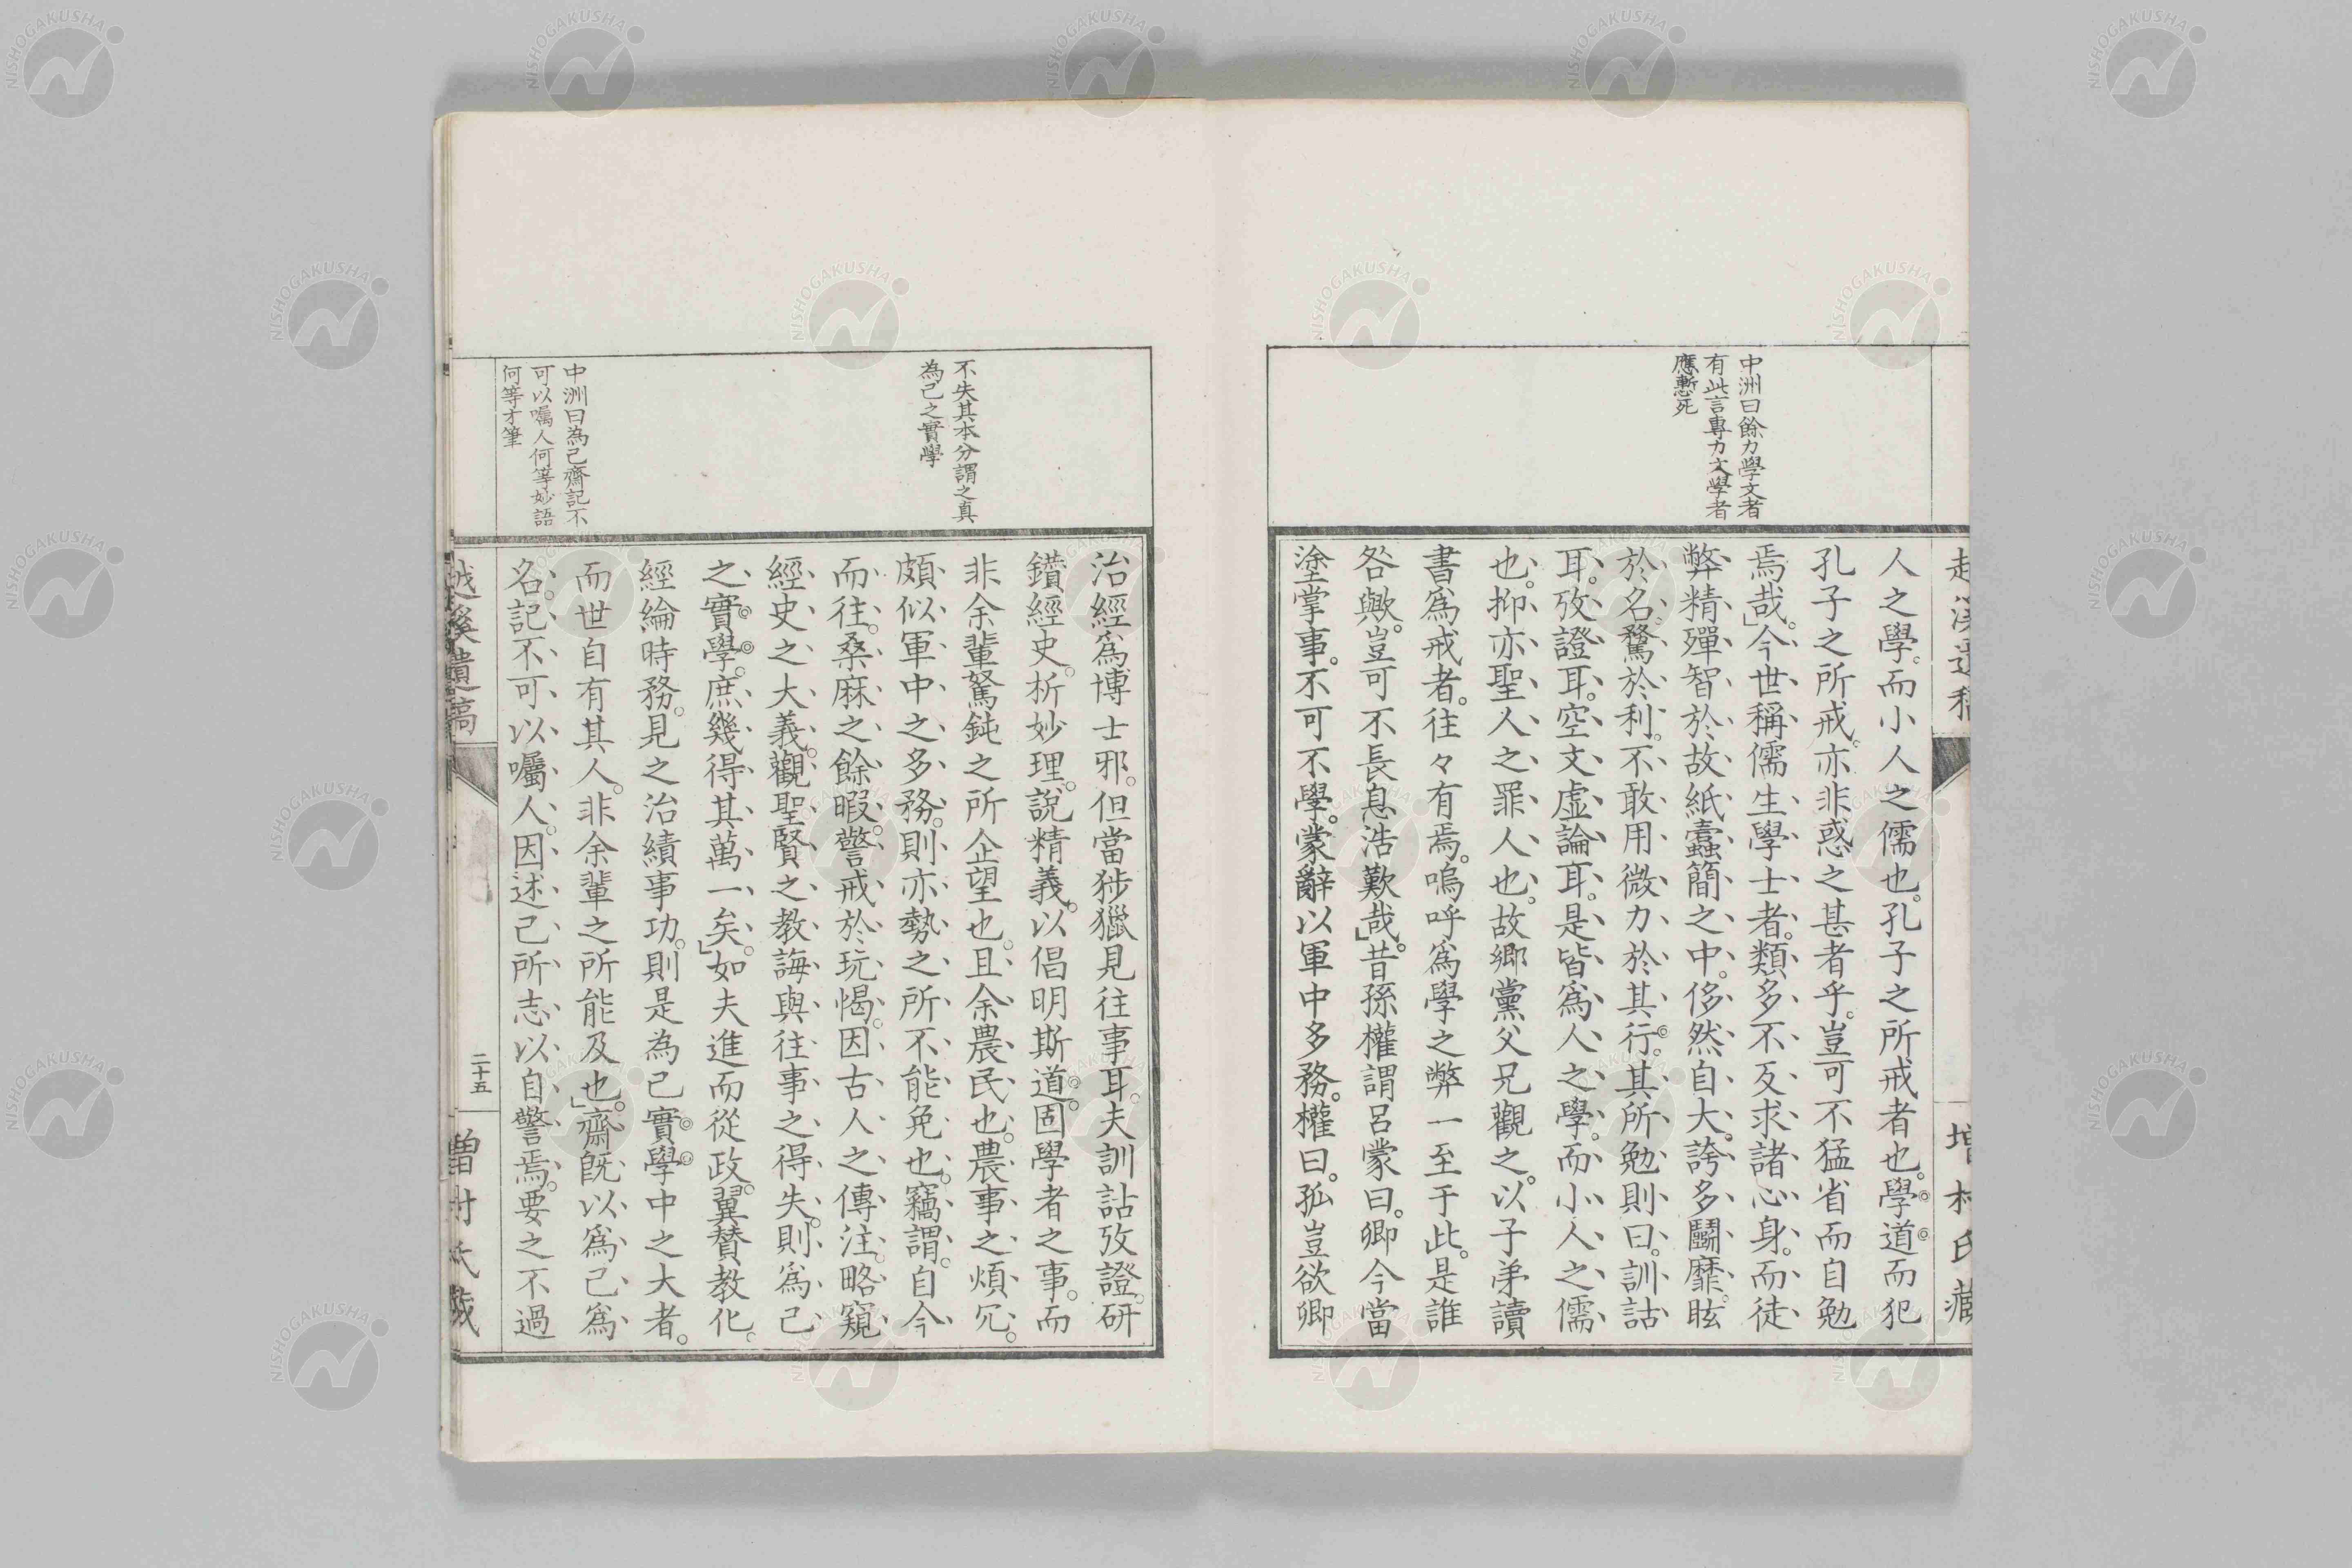 中洲曰餘力學文者
有此言專力文學者
應慙死
人之學。而小人之儒也。孔子之所戒者也。學道而犯
孔子之所戒。亦非惑之甚者乎。豈可不猛省而自勉
焉哉。」今世稱儒生學士者。類多不反求諸心身。而徒
弊精殫智於故紙蠧簡之中。侈然自大。誇多鬭靡。眩
於名騖於利。不敢用微力於其行。其所勉則曰。訓詁
耳。攷證耳。空文虛論耳。是皆爲人之學。而小人之儒
也。抑亦聖人之罪人也。故鄉黨父兄觀之。以子弟讀
書爲戒者。往々有焉。嗚呼爲學之弊一至于此。是誰
咎歟。豈可不長息浩歎哉。」昔孫權謂呂蒙曰。卿今當
塗掌事。不可不學。蒙辭以軍中多務。權曰。孤豈欲卿
增村氏藏
不失其本分謂之真
為己之實學
中洲曰為己齋記不
可以囑人何等妙語
何等才筆
治經爲博士邪。但當涉獵見往事耳。夫訓詁攷證。研
鑽經史。析妙理。說精義。以倡明斯道。固學者之事。而
非余輩駑鈍之所企望也。且余農民也。農事之煩冗。
頗似軍中之多務。則亦勢之所不能免也。竊謂。自今
而往。桑麻之餘暇。警戒於玩愒。因古人之傳注。略窺
經史之大義。觀聖賢之教誨與往事之得失。則爲己
之實學。庶幾得其萬一矣。」如夫進而從政。翼贊教化。
經綸時務。見之治績事功。則是為己實學中之大者。
而世自有其人。非余輩之所能及也。」齋旣以爲己爲
名。記不可以囑人。因述己所志以自警焉。要之不過
越溪遺稿
二十五
增村氏藏
NISHOGAKUSHA